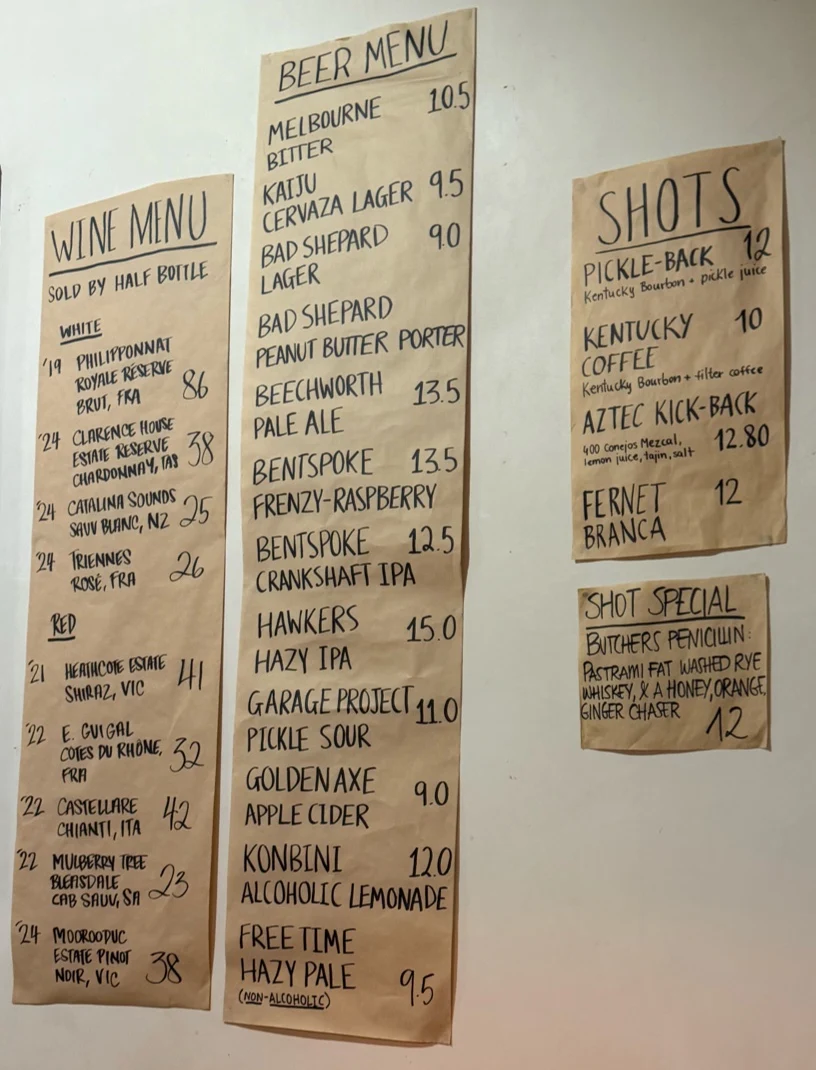 WINE MENU
SOLD BY HALF BOTTLE
WHITE
'19 PHILIPPONNAT
ROYALE RÉSERVE
BRUT, FRA 86
'24 CLARENCE HOUSE
ESTATE RESERVE
CHARDONNAY, TAS 38
'24 CATALINA SOUNDS
SAUV BLANC, NZ 25
'24 TRIENNES
ROSÉ, FRA 26
RED
'21 HEATHCOTE ESTATE
SHIRAZ, VIC 41
'22 E. GUIGAL
COTES DU RHÔNE, 32
FRA
'22 CASTELLARE
CHIANTI, ITA 42
'22 MULBERRY TREE
BLEASDALE
CAB SAUV, SA 23
'24 MOOROODUC
ESTATE PINOT
NOIR, VIC 38
BEER MENU
MELBOURNE 10.5
BITTER
KAIJU
CERVAZA LAGER 9.5
BAD SHEPARD 9.0
LAGER
BAD SHEPARD
PEANUT BUTTER PORTER
BEECHWORTH 13.5
PALE ALE
BENTSPOKE 13.5
FRENZY-RASPBERRY
BENTSPOKE 12.5
CRANKSHAFT IPA
HAWKERS 15.0
HAZY IPA
GARAGE PROJECT 11.0
PICKLE SOUR
GOLDEN AXE 9.0
APPLE CIDER
KONBINI 12.0
ALCOHOLIC LEMONADE
FREE TIME
HAZY PALE 9.5
(NON-ALCOHOLIC)
SHOTS
PICKLE-BACK 12
Kentucky Bourbon + pickle juice
KENTUCKY 10
COFFEE
Kentucky Bourbon + filter coffee
AZTEC KICK-BACK
400 Conejos Mezcal, 12.80
lemon juice, tajin, salt
FERNET 12
BRANCA
SHOT SPECIAL
BUTCHERS PENICILLIN:
PASTRAMI FAT WASHED RYE
WHISKEY, & A HONEY, ORANGE,
GINGER CHASER 12